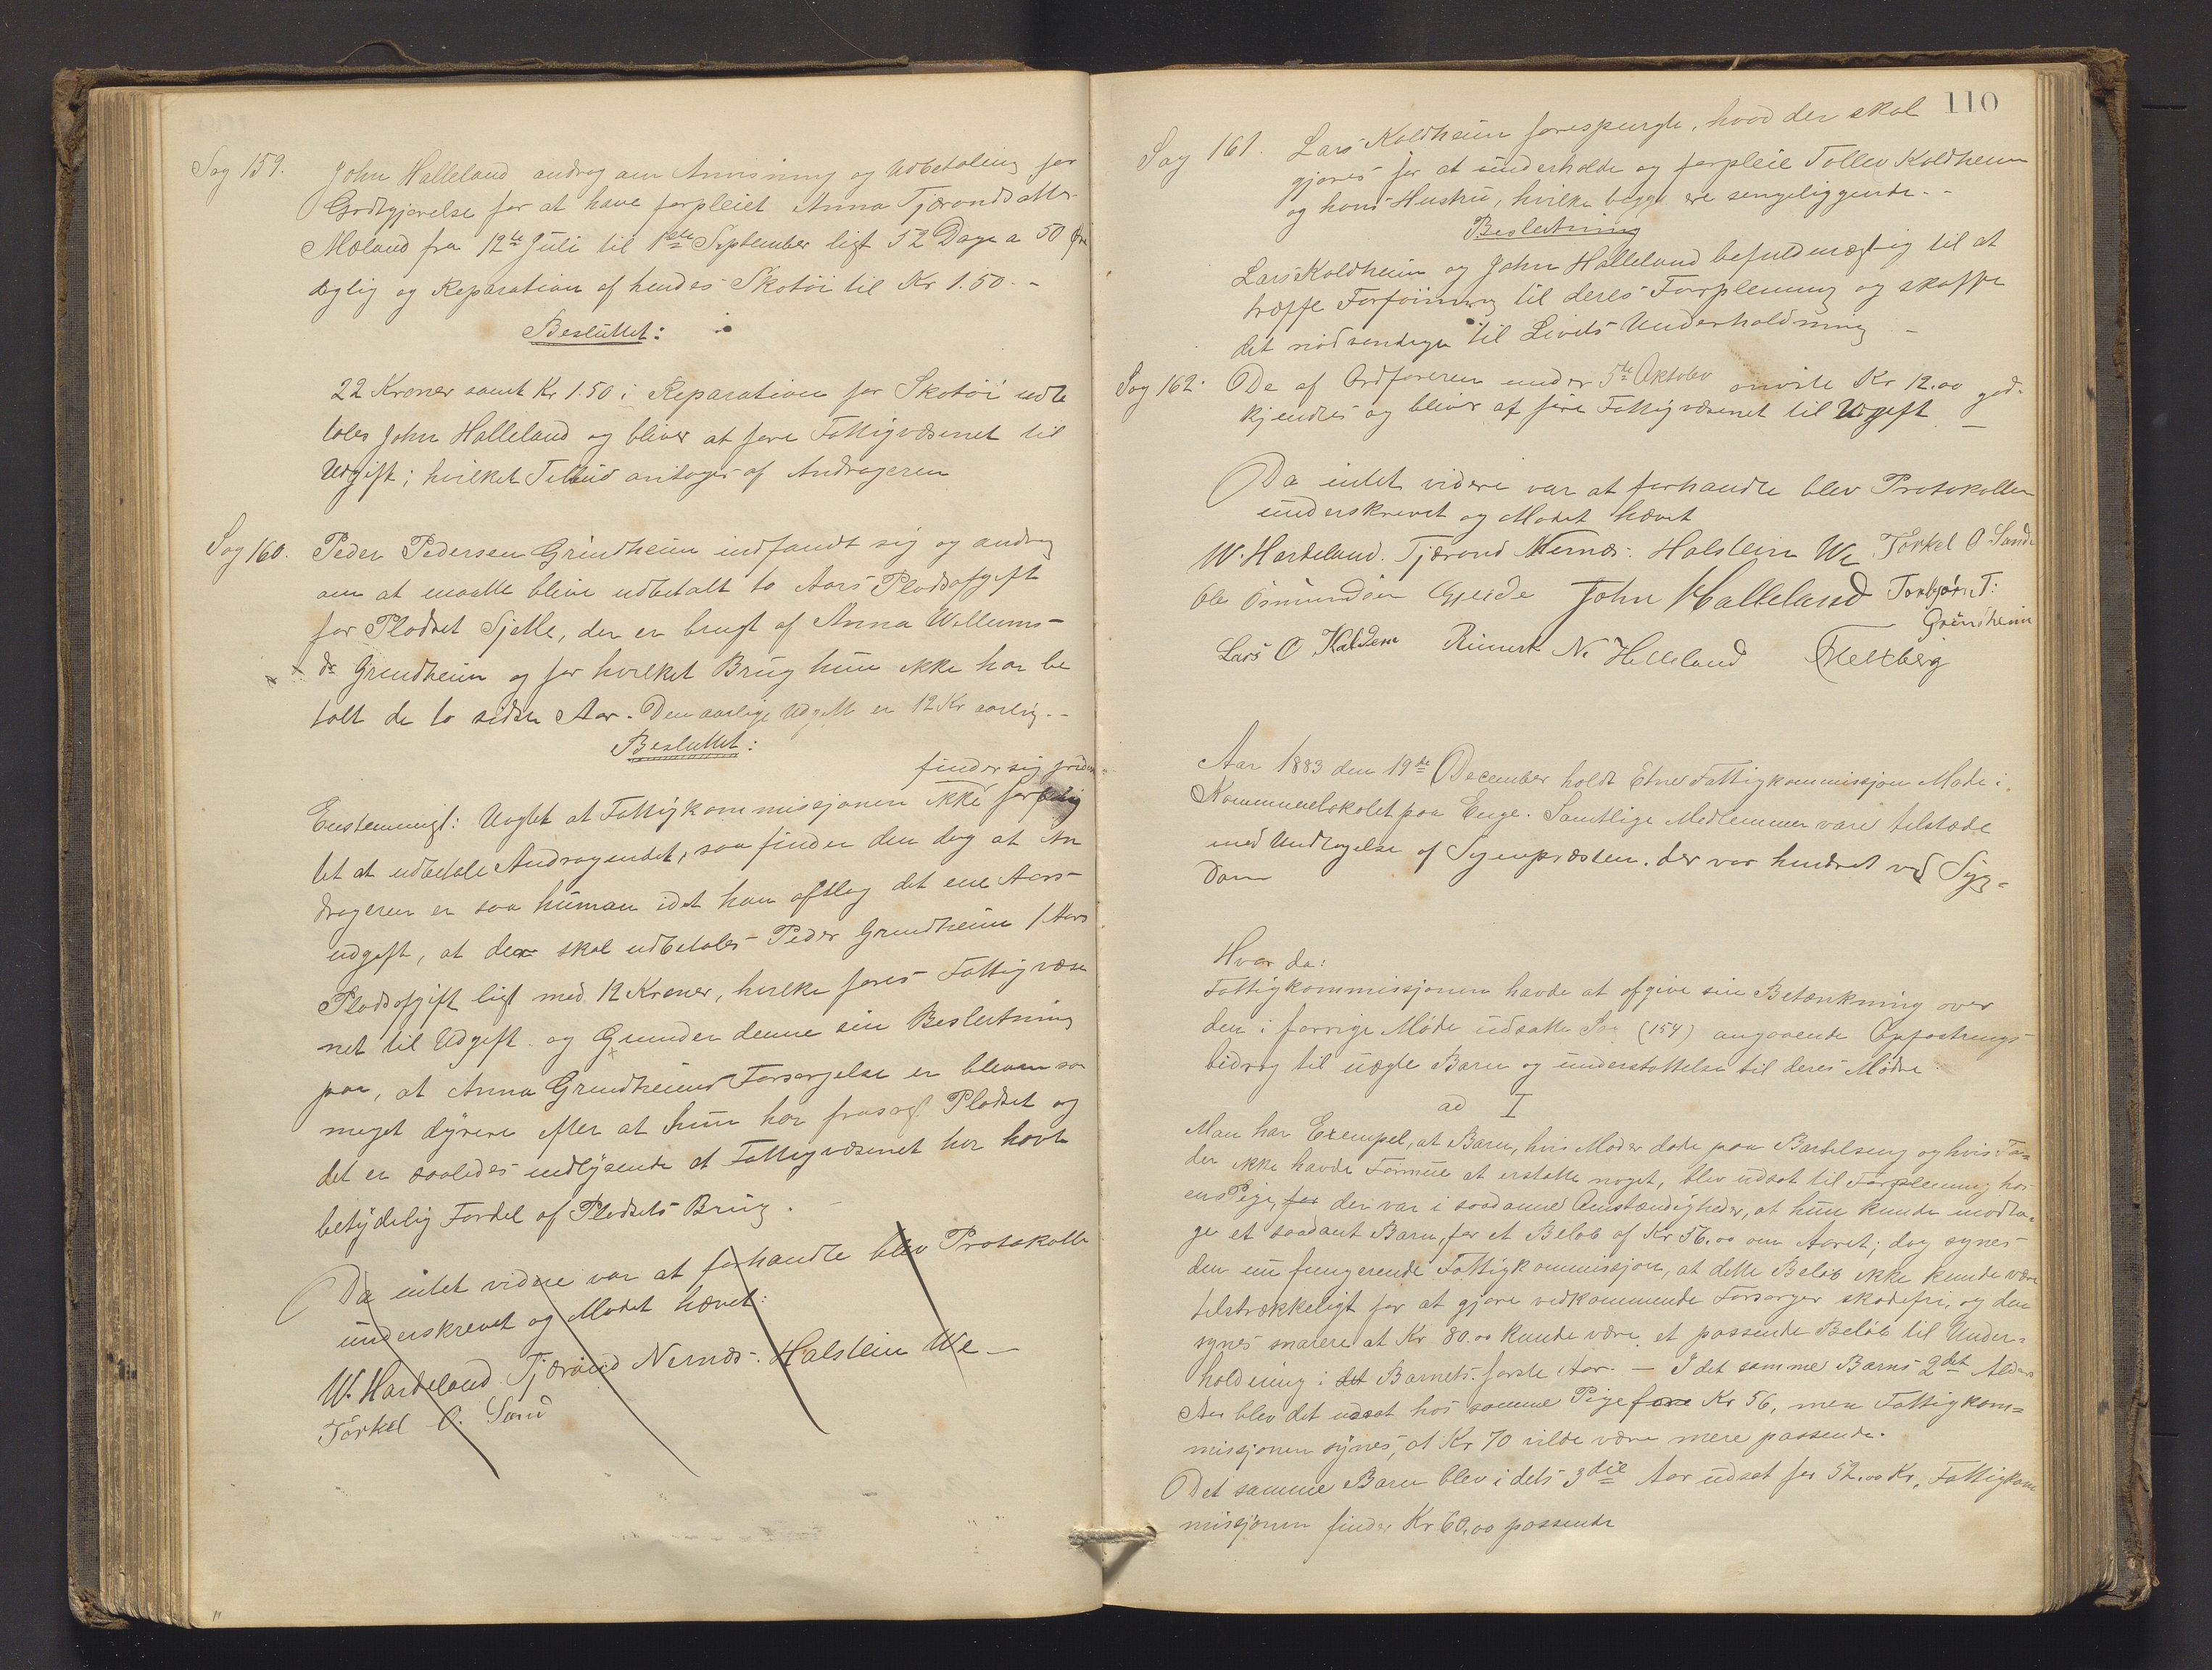 Sag 159. John Halleland androg om Anvisning og Udbetaling for
Godtgjørelse for at have forpleiet Anna Tjæranddatter
Mæland fra 12te Juli til 1ste September ligt 52 Dage a 50 Øre
daglig og Reparation af hendes Skotøi til Kr 1.50.-
Besluttet:
22 Kroner samt Kr 1.50 i Reparation for Skotøi udbe
tales John Halleland og bliver at føre Fattigvæsenet til
Udgift; hvilket Tilbud antages af Andrageren
Sag 160. Peder Pedersen Grindheim indfandt sig og androg
om at maatte blive udbetalt to Aars Pladsafgift
for Pladset Sjelle, der er brugt af Anna Willums-
dr Grindheim og for hvilket Brug hun ikke har be
talt de to sidste Aar. Den aarlige Udgift er 12 Kr aarlig.-
Besluttet:
finder sig
Enstemmigt: Uagtet at Fattigkommissjonen ikke
tet at udbetale Andragendet, saa finder den dog at An
drageren er saa human idet han aftlog det ene Aars
udgift, at der skal udbetales Peder Grindheim 1 Aars
Pladsafgift ligt med 12 Kroner, hvilke føres Fattigvæse
net til Udgift og Grunder denne sin Beslutning
paa, at Anna Grindheims Forsørgelse er bleven saa
meget dyrere efter at hun har frasagt Pladset og
det er saaledes indlysende at Fattigvæsenet har havt
betydelig Fordel af Pladsets Brug.
Da intet videre var at forhandle blev Protokolle
underskrevet og Mødet hævet:
W. Hardeland Tjærand Nernæs. Halstein We -
Torkel O. Sand
110
Sag 161. Lars Koldheim forespurgte, hvad der skal
gjøres for at underholde og forpleie Tollev Koldheim
og hans Hustru, hvilke begge ere sengeliggende.-
Beslutning
Lars Koldheim og John Halleland befuldmægtig til at
træffe Forføining til deres Forplening og skaffe
det nødvendige til Livets Underholdning -
Sag 162. De af Ordføreren under 5te Oktober anviste Kr 12.00 god-
kjendtes og bliver at føre Fattigvæsenet til Udgift
Da intet videre var at forhandle blev Protokollen
underskrevet og Mødet hævet
W. Hardeland. Tjærand Nernæs. Halstein We Torkel O Sande
Ole Osmundsen Gjerde John Halleland Torbjørn T:
Grindheim
Lars O Kaldem Reinert N. Helleland
Aar 1883 den 19de December holdt Etne Fattigkommissjon Møde i
Kommunelokalet paa Enge. Samtlige Medlemmer vare tilstæde
med Undtagelse af Sognepræsten, der var hindret ved Syg-
dom
Hvor da:
Fattigkommissjonen havde at afgive sin Betænkning over
den i forrige Møde udsatte Sag (154) angaaende Opfostrings
bidrag til uægte Børn og understøttelse til deres Mødre.
ad I
Man har Exempel, at Barn, hvis Moder døde paa Barselseng og hvis Fa-
der ikke havde Formue at erstatte noget, blev udsat til Forplening hos
en Pige, for der var i saadanne Omstændigheder, at hun kunde modta-
ge et saadant Barn, for et Beløb af Kr 56.00 om Aaret; dog synes
den nu fungerende Fattigkommissjon, at dette Beløb ikke kunde være
tilstrækkeligt for at gjøre vedkommende Forsørger skadefri, og den
synes snarere at Kr 80.00 kunde være et passende Beløb til Under-
holdning i det Barnets første Aar. - I det samme Barns 2det Alders
Aar blev det udsat hos samme Pige for Kr 56, men Fattigkom-
missjonen synes, at Kr 70 vilde være mere passende.
Det samme Barn blev i dets 3die Aar udsat for 52.00 Kr, Fattigkom
missjonen finder Kr 60.00 passende